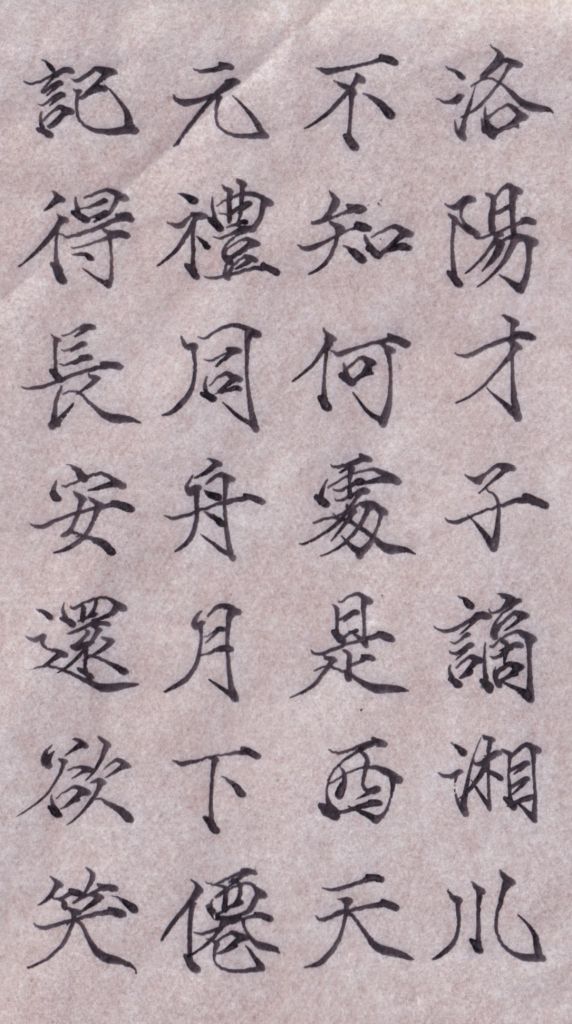 洛陽才子謫湘川
不知何處是西天
元禮同舟月下僊
記得長安還欲笑